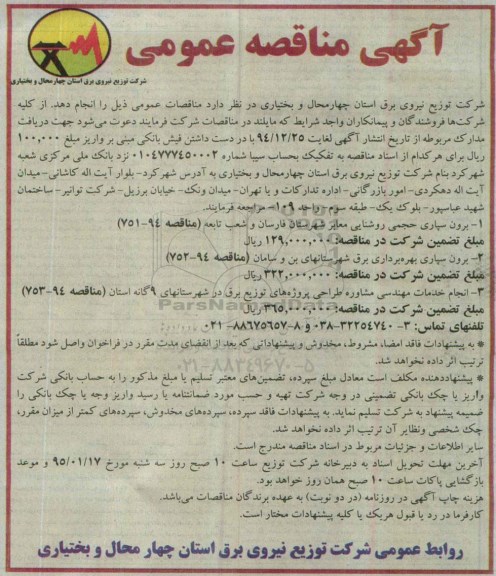 آگهی مناقصه عمومی
شرکت توزیع نیروی برق استان چهارمحال و بختیاری
شرکت توزیع نیروی برق استان چهارمحال و بختیاری در نظر دارد مناقصات عمومی ذیل را انجام دهد. از کلیه
شرکت‌ها فروشندگان و پیمانکاران واجد شرایط که مایلند در مناقصات شرکت فرمایند دعوت می‌شود جهت دریافت
مدارک مربوطه از تاریخ انتشار آگهی لغایت ۹۴/۱۲/۲۵ با در دست داشتن فیش بانکی مبنی بر واریز مبلغ ۱۰۰,۰۰۰
ریال برای هر کدام از اسناد مناقصه به تفکیک بحساب سیبا شماره ۰۱۰۴۷۷۷۴۵۰۰۰۲ نزد بانک ملی مرکزی شعبه
شهرکرد بنام شرکت توزیع نیروی برق استان چهارمحال و بختیاری به آدرس شهرکرد- بلوار آیت اله کاشانی- میدان
آیت اله دهکردی- امور بازرگانی- اداره تدارکات و یا تهران- میدان ونک- خیابان برزیل- شرکت توانیر- ساختمان
شهید عباسپور- بلوک یک- طبقه سوم- واحد ۱۰۹- مراجعه فرمایند.
۱- برون سپاری حجمی روشنایی معابر شهرستان فارسان و شعب تابعه (مناقصه ۹۴-۷۵۱)
مبلغ تضمین شرکت در مناقصه: ۱۲۹,۰۰۰,۰۰۰ ریال
۲- برون سپاری بهره‌برداری برق شهرستانهای بن و سامان (مناقصه ۹۴-۷۵۲)
مبلغ تضمین شرکت در مناقصه: ۳۲۲,۰۰۰,۰۰۰ ریال
۳- انجام خدمات مهندسی مشاوره طراحی پروژه‌های توزیع برق در شهرستانهای ۹گانه استان (مناقصه ۹۴-۷۵۳)
مبلغ تضمین شرکت در مناقصه: ۳۶۵,۰۰۰,۰۰۰ ریال
تلفنهای تماس: ۳- ۳۲۲۵۴۷۴۰-۰۳۸ و ۸-۸۸۶۷۵۶۵۷ -۰۲۱
* به پیشنهادات فاقد امضا، مشروط، مخدوش و پیشنهاداتی که بعد از انقضای مدت مقرر در فراخوان واصل شود مطلقاً
ترتیب اثر داده نخواهد شد.
* پیشنهاددهنده مکلف است معادل مبلغ سپرده، تضمین‌های معتبر تسلیم یا مبلغ مذکور را به حساب بانکی شرکت
واریز یا چک بانکی تضمینی در وجه شرکت تهیه و حسب مورد ضمانتنامه یا رسید واریز وجه یا چک بانکی را
ضمیمه پیشنهاد به شرکت تسلیم نماید. به پیشنهادات فاقد سپرده، سپرده‌های مخدوش، سپرده‌های کمتر از میزان مقرر،
چک شخصی ونظایر آن ترتیب اثر داده نخواهد شد.
سایر اطلاعات و جزئیات مربوط در اسناد مناقصه مندرج است.
آخرین مهلت تحویل اسناد به دبیرخانه شرکت توزیع ساعت ۱۰ صبح روز سه شنبه مورخ ۹۵/۰۱/۱۷ و موعد
بازگشایی پاکات ساعت ۱۰ صبح همان روز خواهد بود.
هزینه چاپ آگهی در روزنامه (در دو نوبت) به عهده برندگان مناقصات می‌باشد.
کارفرما در رد یا قبول هریک یا کلیه پیشنهادات مختار است.
روابط عمومی شرکت توزیع نیروی برق استان چهار محال و بختیاری
ParsNamadData
۰۲۱-۸۸۳۴۹۶۷۰-۵